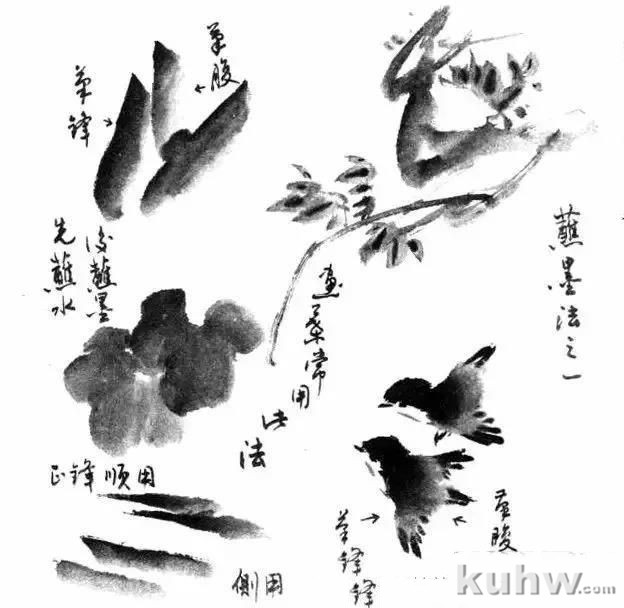 蘸墨法之一
笔腹
笔锋
先蘸水
后蘸墨
画叶常用此法
正锋顺用
侧用
笔腹
笔锋
kuhw.com